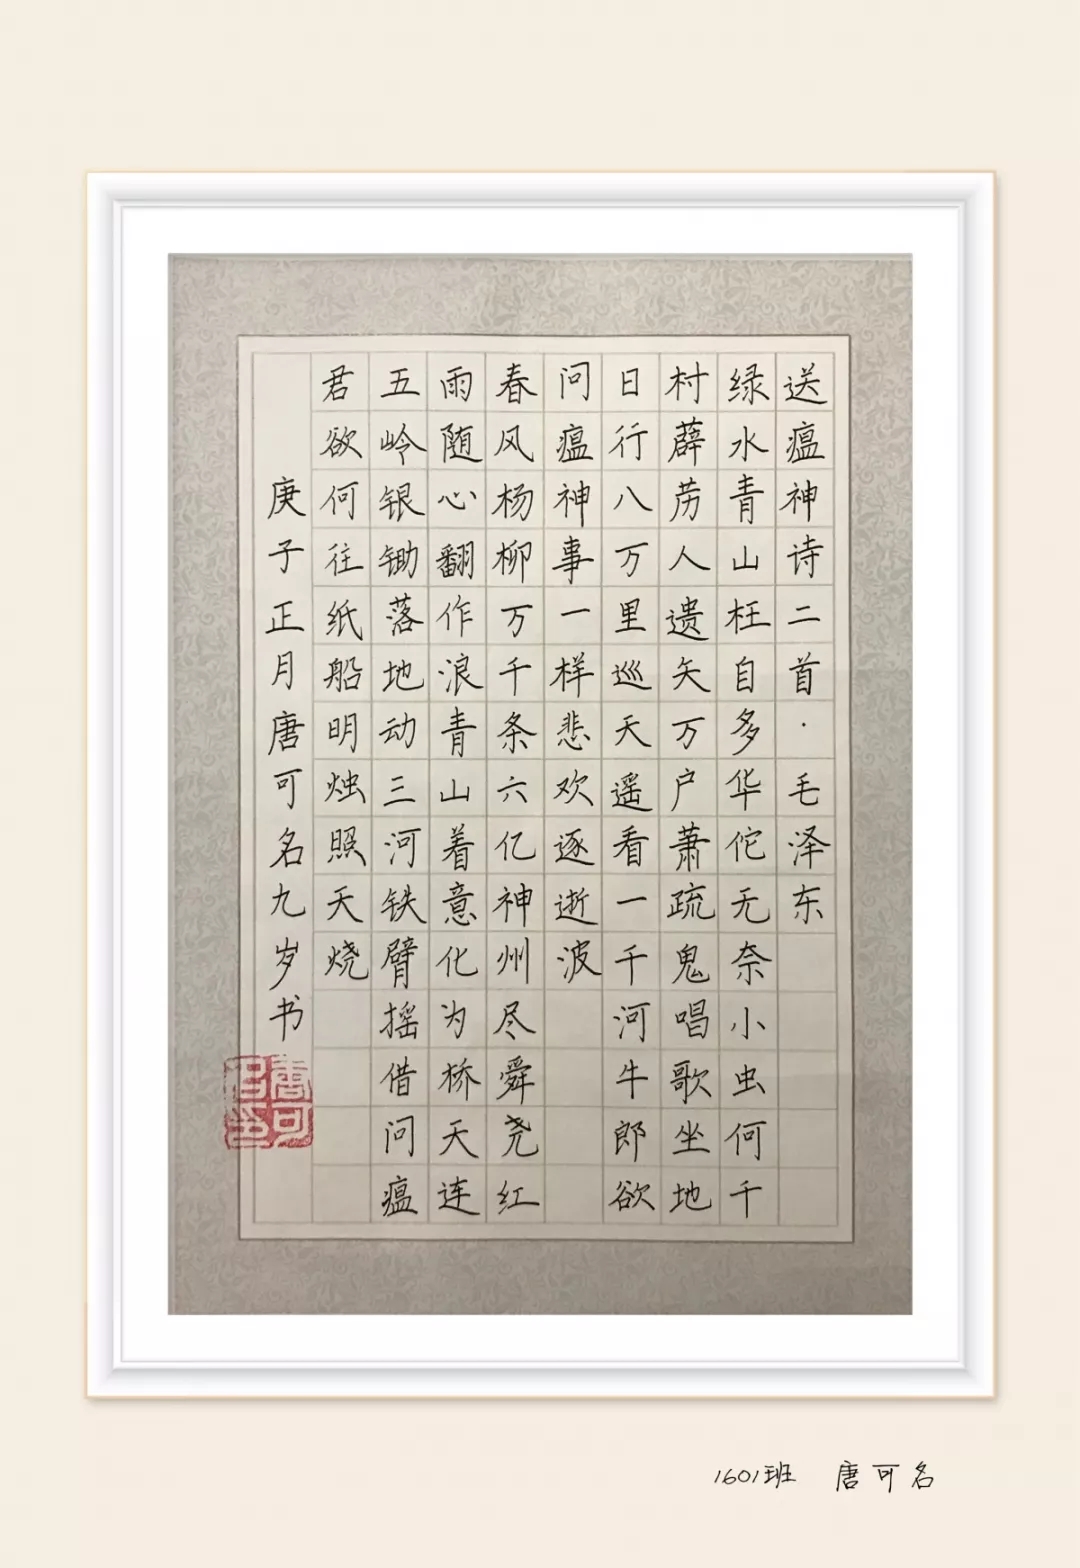 送瘟神诗二首·毛泽东
绿水青山枉自多华佗无奈小虫何千
村薜人遗矢万户萧疏鬼唱歌坐地
日行八万里巡天遥看一千河牛郎欲
问瘟神事一样悲欢逐逝波
春风杨柳万千条六亿神州尽舜尧红
雨随心翻作浪青山着意化为桥天连
五岭银锄落地动三河铁臂摇借问瘟
君欲何往纸船明烛照天烧
庚子正月唐可名九岁书
唐可名印
1601班 唐可名